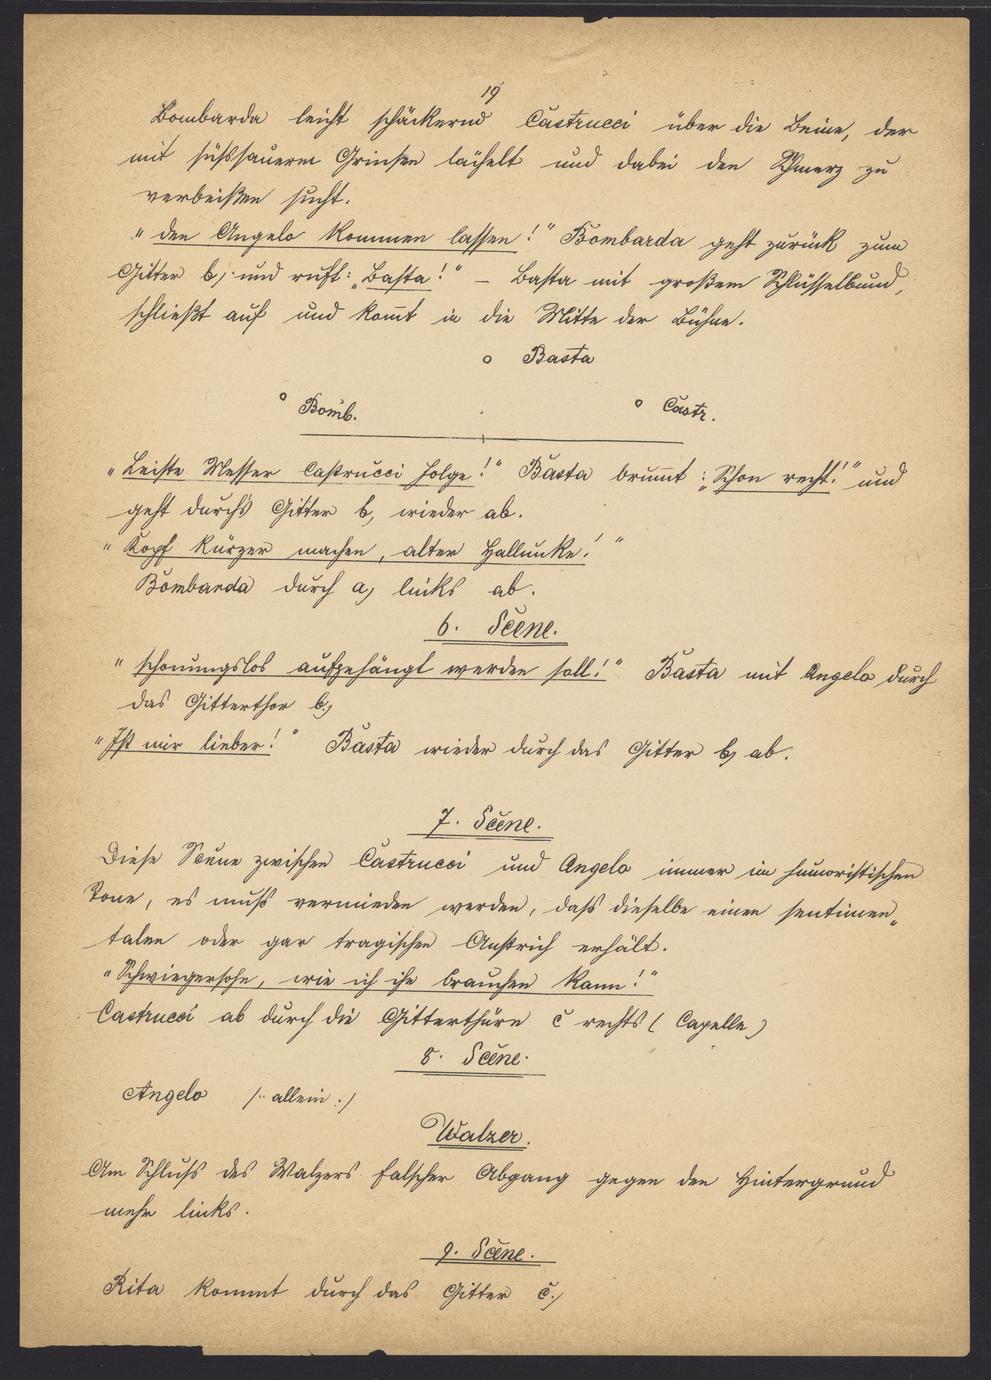 19
Bombarda leicht schäckernd Castrucci über die Beine, der
mit süßsauerm Grinsen lächelt und dabei den Schmerz zu
verbeißen sucht.
"den Angelo kommen lassen!" Bombarda geht zurück zum
Gitter b, und ruft: "Basta!" – Basta mit großem Schlüsselbund,
schließt auf und kom̄t in die Mitte der Bühne.
o Basta
o Bomb. o Castr.
"Leiste Messer Castrucci Folge!" Basta brum̄t: "Schon recht!" und
geht durch's Gitter b, wieder ab.
"Kopf kürzer machen, alter Hallunke!"
Bombarda durch a, links ab.
6. Scene.
"schonungslos aufgehängt werden soll!" Basta mit Angelo durch
das Gitterthor b,
"Ist mir lieber!" Basta wieder durch das Gitter b, ab.
7. Scene.
Diese Scene zwischen Castrucci und Angelo immer im humoristischen
Tone, es muß vermieden werden, daß dieselbe einen sentimen„
talen oder gar tragischen Anstrich erhält.
"Schwiegersohn, wie ich ihn brauchen kann!"
Castrucci ab durch die Gitterthüre c rechts (Capelle)
8. Scene.
Angelo /: allein :/
Walzer.
Am Schluß des Walzers falscher Abgang gegen den Hintergrund
mehr links.
9. Scene.
Rita kommt durch das Gitter c,